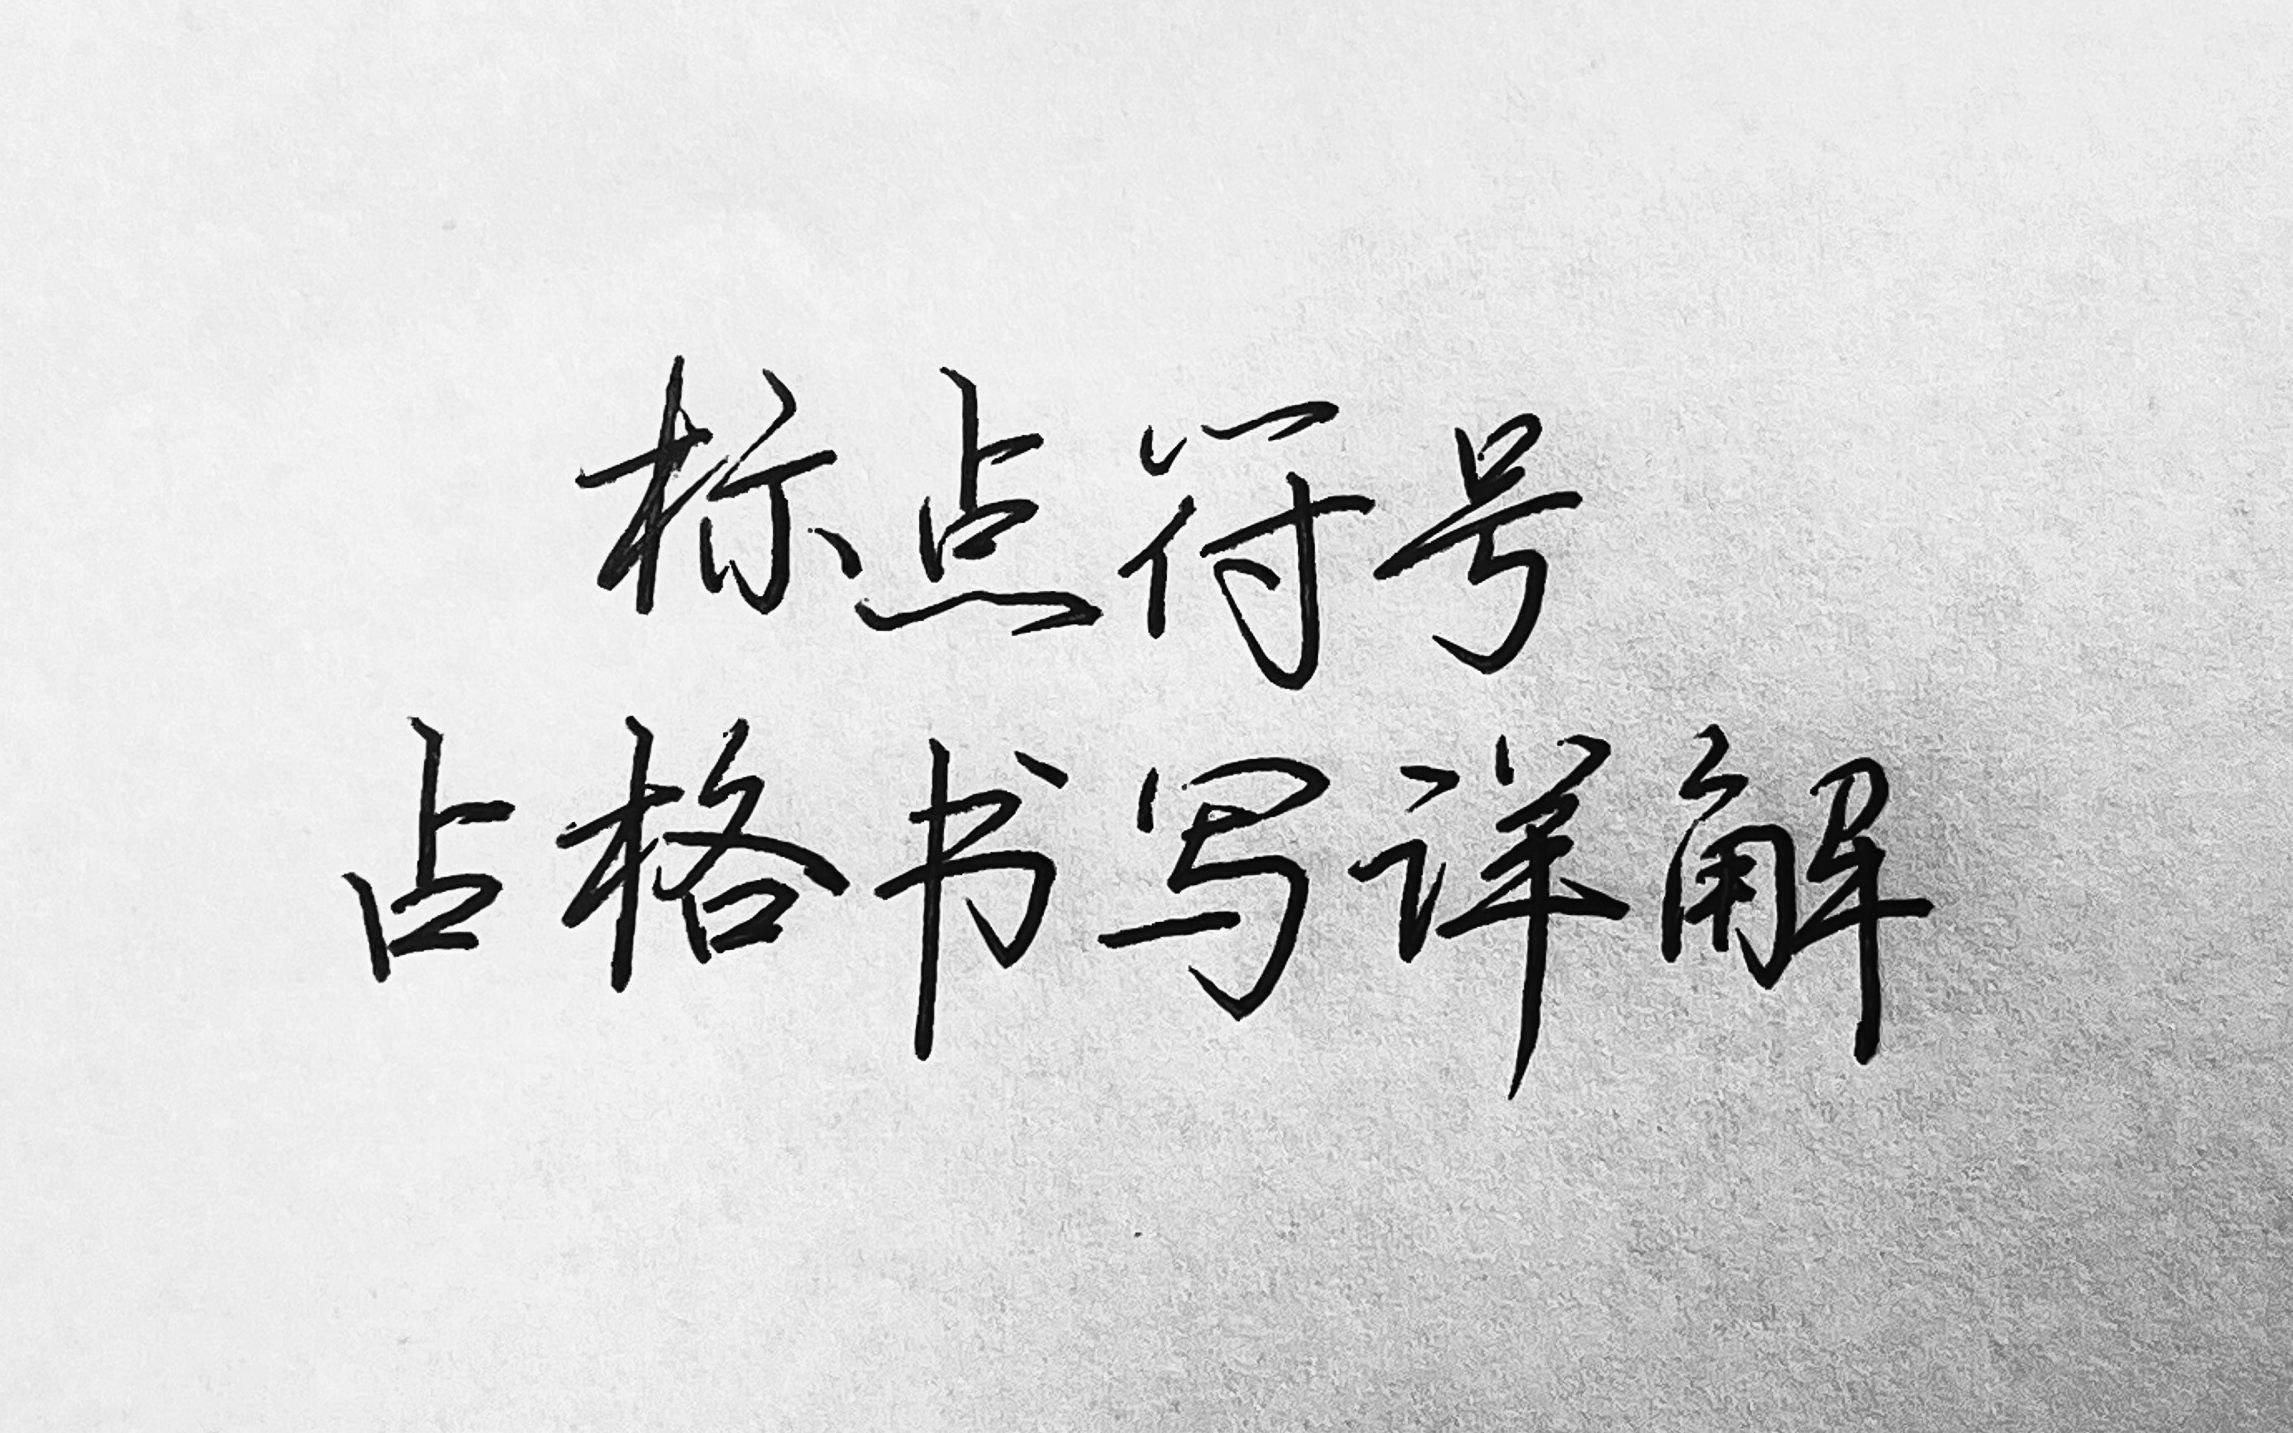 标点符号
占格书写详解